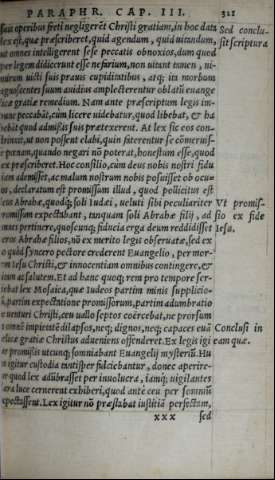 PARAPHR. CAP. III. 321
suis operibus freti negligerēt Christi gratiam, in hoc data
lex est, quæ præscriberet, quid agendum, quid uitandum,
ut omnes intelligerent sese peccatis obnoxios, dum quod
per legem didicerunt esse nefarium, non uitant tamen, ni-
mirum uicti suis prauis cupiditatibus, atq; ita morbum
agnoscentes suum auidius amplecterentur oblatū euange
licæ gratiæ remedium. Nam ante præscriptum legis im-
pune peccabāt, cum licere uidebatur, quod libebat, & ha
bebat quod admissis suis prætexerent. At lex sic eos con-
strinxit, ut non possent elabi,
pœnam, quando negari nō poterat, honestum esse, quod
ex præscriberet. Hoc consilio, cùm deus nobis nostri fidu
iam ademisset, ac malum nostrum nobis posuisset ob ocu-
os, declaratum est promissum illud, quod pollicitus est
Abrahæ, quodq; soli Iudæi, ueluti sibi peculiariter
romissum expectabant, tanquam soli Abrahæ filij, ad
mneis pertinere, quoscunq; fiducia erga deum reddidisset
eros Abrahæ filios, nō ex merito legis obseruatæ, sed ex
o quòd syncero pectore crederent Euangelio, per mor-
m Iesu Christi, & innocentiam omnibus contingere, &
uam ac salutem. Et ad hanc quoq; rem pro tempore ser-
iebat lex Mosaica, quæ Iudæos partim minis supplicio-
, partim expectatione promissorum, partim adumbratio
e uenturi Christi, ceu uallo septos coërcebat, ne prorsum
omnē impietatē dilapsos, neq; dignos, neq; capaces euā
elicæ gratiæ Christus adueniens offenderet. Ex legis igi
r promissis utcunq; somniabant Euangelij mysteriū. Hu
s igitur custodia tantisper fulciebantur, donec aperire-
r quod lex adūbrasset per inuolucra, iamq; uigilantes
ara luce cernerent exhiberi, quod antè ceu per somnium
expectassent. Lex igitur nō præstabat iustitiā perfectam,
xxx sed
Sed conclu-
sit scriptura
Vt promis-
sio ex fide
Iesu,
Conclusi in
eam quæ.